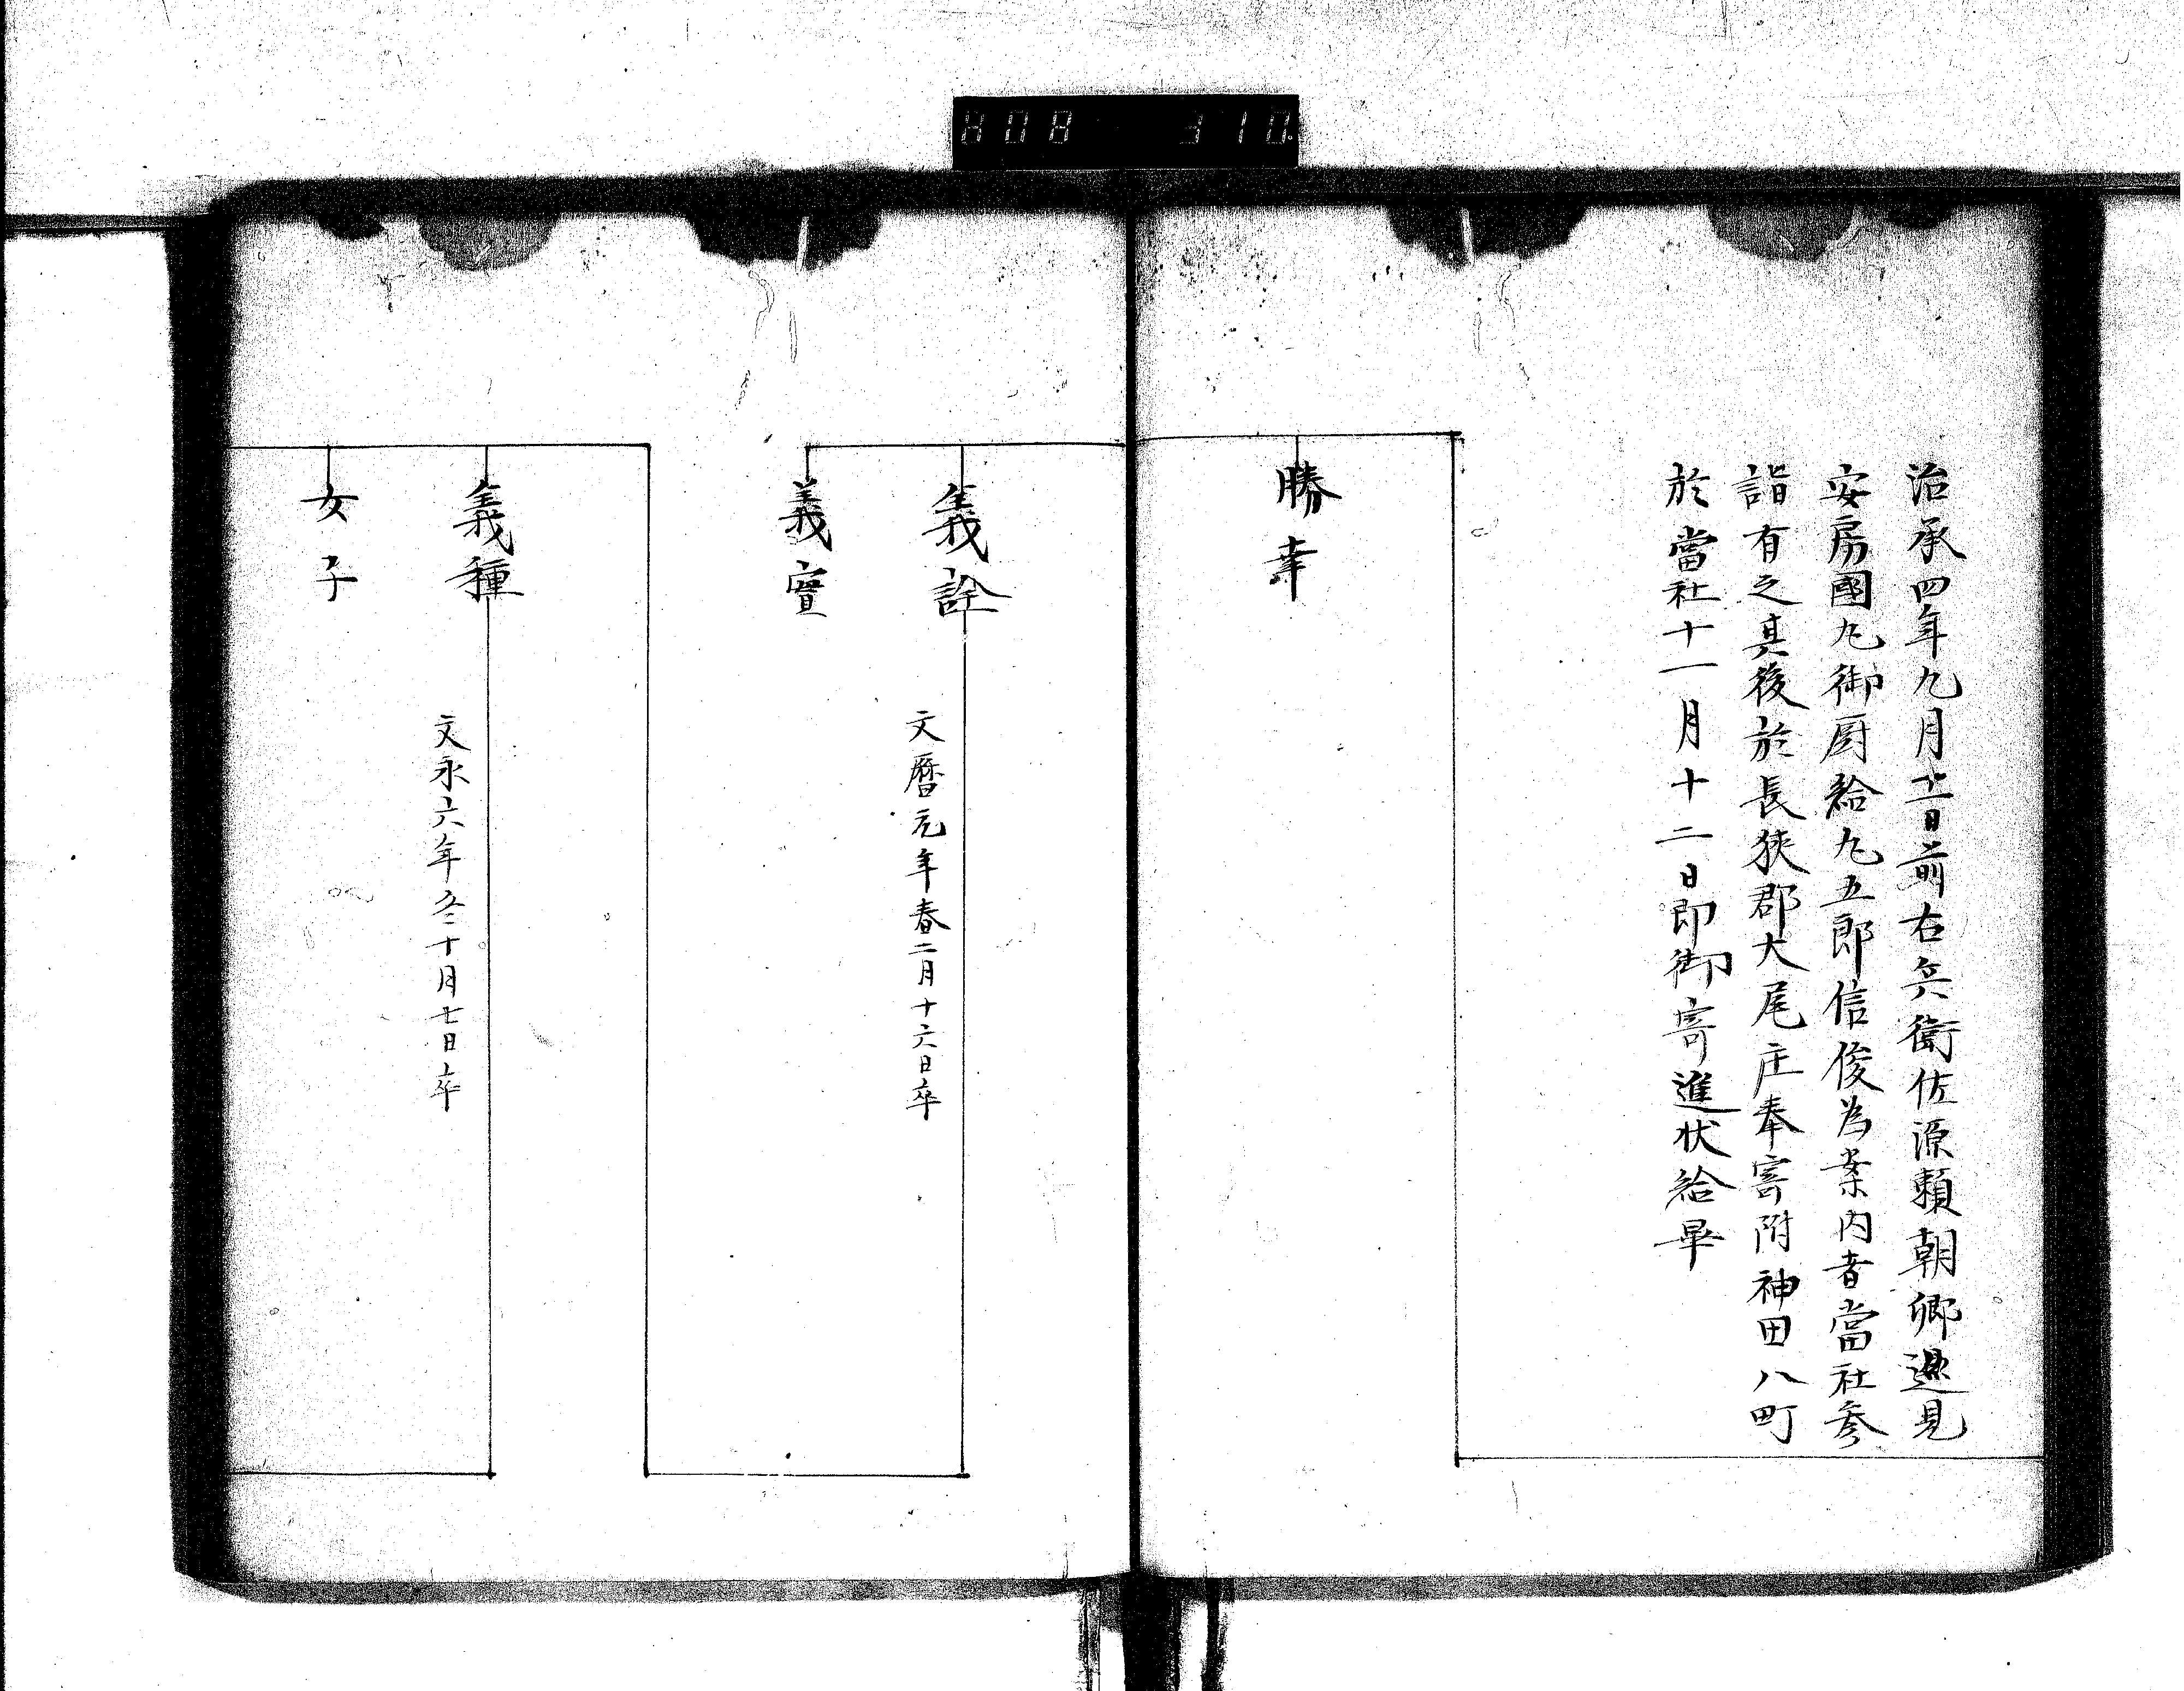 H08 310
治承四年九月十一日前右兵衛佐源頼朝卿巡見
安房國丸御厨給丸五郎信俊為案内者當社参
詣有之其後於長狭郡大尾庄奉寄附神田八町
於當社十一月十二日即御寄進状給畢
勝幸
義詮
文暦元年春二月十六日卒
義實
義種
文永六年冬十月七日卒
女子